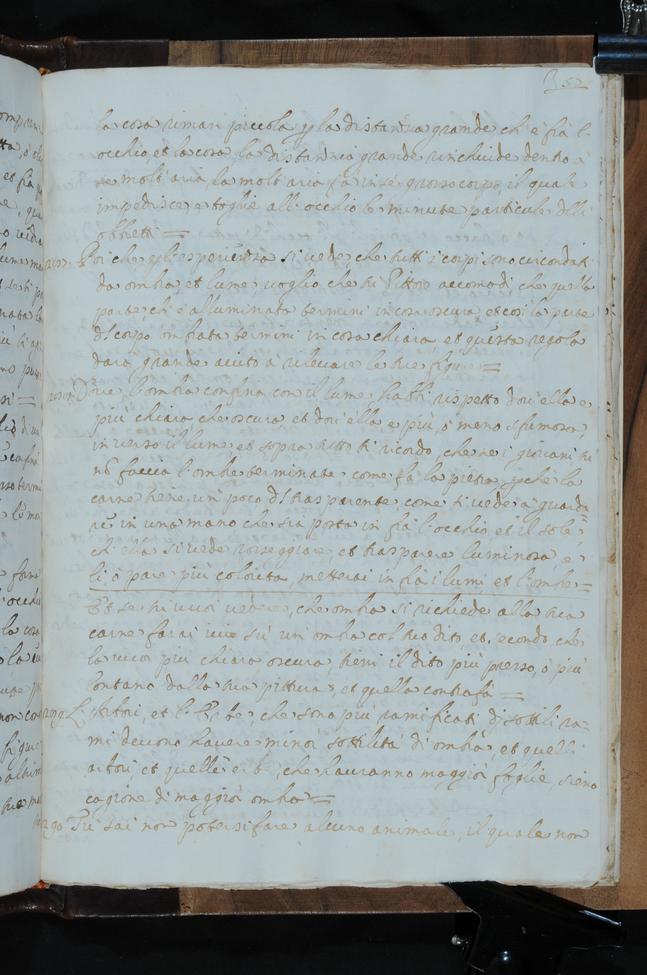 52
la cosa riman piccola p la distantia grande ch'è frà l'
occhio, et la cosa, la distantia grande rinchiude dentro a
se molt'aria, la molt'aria fà in se grosso corpo, il quale
impedisce, e toglie all'occhio le minute particule delli
obbietti =
Poi che p esperientia si vede, che tutti i corpi sono circondati
da ombra, et lume, voglio che tu Pittore accomodi che quella
parte ch'è alluminata termini in cosa oscura, et cosi la parte
del corpo ombrata termini in cosa chiara, et questa regola
darà grande aiuto a rilevare le tue figure =
Dove l'ombra confina con il lume habbi rispetto dov'ella è
più chiara che oscura, et dov'ella è più, ò meno sfumosa,
inverso il lume, et sopra tutto ti ricordo, che ne i giovani tu
nō faccia l'ombre terminate come fà la pietra, pchè la
carne tiene un poco del trasparente, come si vede a guarda
re in una mano che sia posta in frà l'occhio, et il sole
ch'ella si vede rosseggiare, et trasparere luminosa, e
se la pare più colorita, metterai in frà i lumi, et l'ombre =
Et se tu vuoi vedere, che ombra si richiede alla tua
carne farai ivi sù un'ombra col tuo dito, et, secondo, che
la vuoi più chiara, oscura, tieni il dito più presso, ò più
lontano dalla tua pittura, et quella contrafà =
L'arbori, et l'Erbe, che sono più ramificati di sottili ra-
mi devono havere minor sottilità d'ombra, et quelli
arbori, et quelle erbe, che hauranno maggior foglie, sieno
cagione di maggior ombra =
Tu sai non potersi fare alcuno animale, il quale non